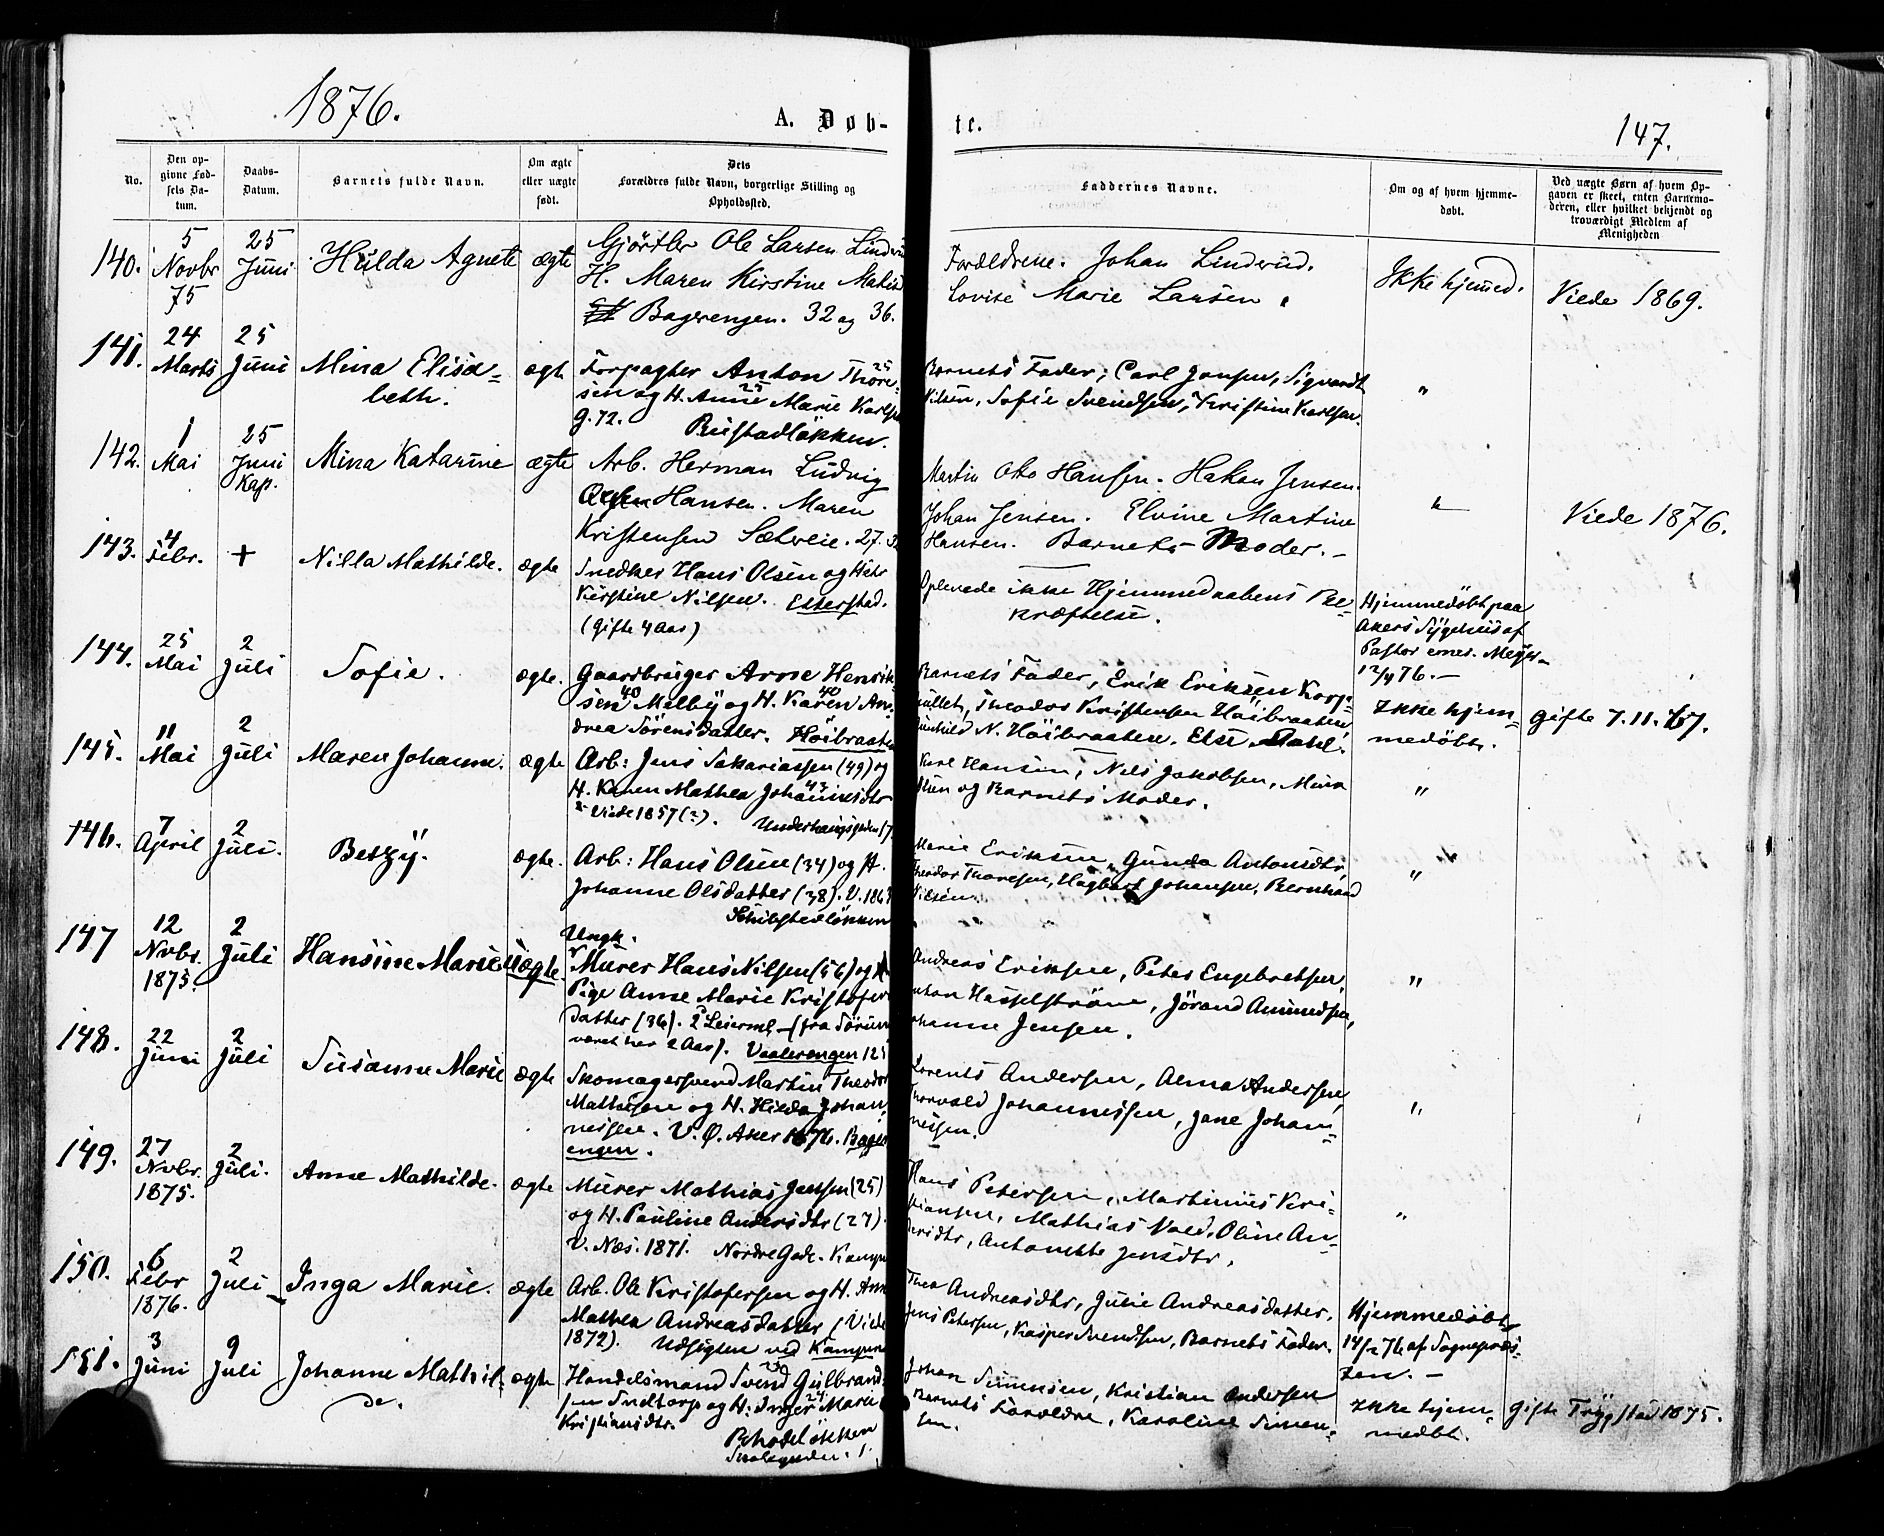 1876.
A. Døb-
te.
147.
No.
Den opgivne Fødsels Datum.
Daabs-Datum.
Barnets fulde Navn.
Om ægte eller uægte født.
Dets Forældres fulde Navn, borgerlige Stilling og Opholdssted.
Faddernes Navne.
Om og af hvem hjemmedøbt.
Ved uægte Børn af hvem Opgaven er skeet, enten Barnemoderen, eller hvilket bekjendt og troværdigt Medlem af Menigheden
140. 5 Novbr 75 25 Juni Hilda Agnete ægte
Gjørtler Ole Larsen Linderud
H. Maren Kirstine
Bagerengen. 32 og 36.
Forældrene. Johan Linderud.
Lovise Marie Larsen.
Ikke hjemmed.
Viede 1869.
141. 24 Marts 25 Juni Mina Elisa=
beth. ægte
Forpagter Anton Thore- 25
sen og H. Anne Marie Karlsen 25
g. 72. Rustadløkken.
Barnets Fader, Carl Jansen, Sigvardt
Nilsen, Sofie Svendsen, Kristine Karlsen.
"
142. 1 Mai 25 Juni Kap. Mina Katarine ægte
Arb. Herman Ludvig
Hansen. Maren
Kristensen Sætreie. 27.
Martin Oto Hansen. Hakon Jensen.
Johan Jensen. Elvine Martine
Hansen. Barnets Moder. –
"
Viede 1876.
143. 4 Febr. + Nilla Mathilde. ægte
Snedker Hans Olsen og Hstr
Kirstine Nilsen. Etterstad.
(Gifte 4 Aar)
Oplevede ikke Hjemmedaabens Be=
kræftelse.
Hjemmedøbt paa
Akers Sygehus af
Pastor emer. Meyer
144. 25 Mai 2 Juli Sofie. ægte.
Gaardbruger Arne Henrik-
sen Melby og H. Karen An- 40 40
drea Sørensdatter. Høibraaten
Barnets Fader, Erik Eriksen Korp-
hullet, Theodor Kristensen Høibraaten
Gunhild N. Høibraaten. Else Dahl.
Ikke hjem=
medøbt.
Gifte 7.11.67.
145. 11 Mai 2 Juli Maren Johanne. ægte
Arb: Jens Sakariassen (49) og
H. Karen Mathea Johannesdtr 43
Viede 1857 (?).
Karl Hansen, Nils Jakobsen, Mina
og Barnets Moder.
"
146. 7 April 2 Juli. Betzy. ægte.
Arb: Hans Olsen (34) og H.
Johanne Olsdatter (38). V. 186
Schibstedløkken
Marie Eriksen, Gunda Antonsdtr,
Theodor Thoresen, Hagbart Johansen, Bernhard
Nilsen.
"
147 12 Novbr. 1875. 2 Juli Hansine Marie Uægte.
Ungk.
Murer Hans Nilsen (56) og
Pige Anne Marie Kristofer
datter (36). 2 Leierml. – (fra Sørum
været her 2 Aar). Vaalerengen 125
Andreas Eriksen, Peter Engebretsen,
Anton Hasselstrøm, Jørand Amundsen,
Johanne Jensen.
"
148. 22 Juni 2 Juli Susanne Marie ægte
Skomagersvend Martin Theodor
Mathisen og H. Hilda Johan-
nessen. V. Ø. Aker 1876. Bager
engen.
Lorents Andersen, Alma Andersen,
Thorvald Johannessen, Jane Johan=
nessen.
"
149. 27 Novbr. 1875. 2 Juli. Anne Mathilde. ægte
Murer Mathias Jensen (25)
og H. Pauline Andersdtr (27).
V. Næs. 1871. Nordre Gade. Kampen
Hans Petersen, Martinus Kri-
stiansen, Mathias Vold, Oline An=
dersdtr, Antonette Jensdtr.
"
150. 6 Febr 1876. 2 Juli Inga Marie. ægte
Arb. Ole Kristofersen og H. Anne
Mathea Andreasdatter (Viede
1872). Udsigten ved Kampen
Thea Andreasdtr, Julie Andreasdatter,
Jens Petersen, Kasper Svendsen, Barnets Fader.
Hjemmedøbt
14/2 76 af Sognepræs-
ten. –
151. 3 Juni 9 Juli Johanne Mathil-
de. ægte
Handelsmand Svend Gulbrand-
sen Sndtorp og H. Inger Marie
Kristiansdtr.
Rhodeløkken
Johan Simensen, Kristian Andersen
Barnets Forældre, Karoline Simen-
sen.
Ikke hjem-
medbt.
Gifte Trygstad 1875.